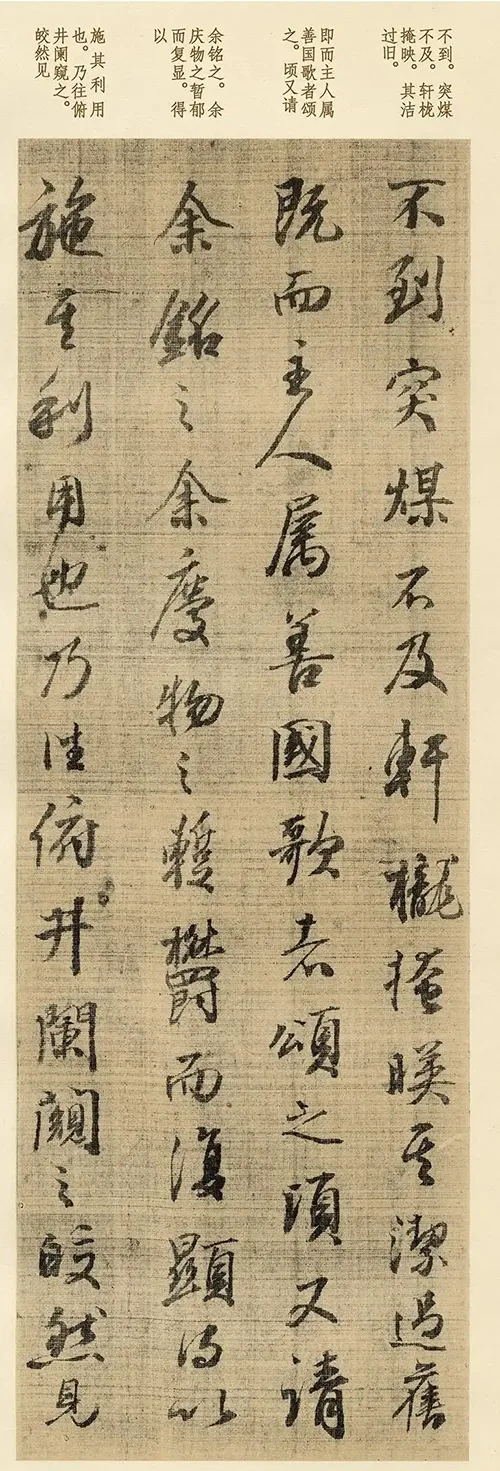 不到。突煤
不及。轩栊
掩映。其洁
过旧。
即而主人属
善国歌者颂
之。顷又请
余铭之。余
庆物之暂郁
而复显。得
以
施其利用
也。乃往俯
井阑窥之。
皎然见
不到突煤不及軒櫳掩暎其潔過舊
既而主人属善國歌者頌之頃又請
余銘之余慶物之暫欝而復顯得以
施其利用也乃往俯井闌闚之皎然見